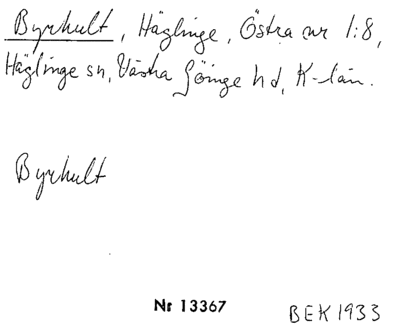 Byrhult, Häglinge, Östra nr 1:8,
Häglinge sn, Västra Göinge hd, K-län.
Byrhult
Nr 13367
BEK 1933